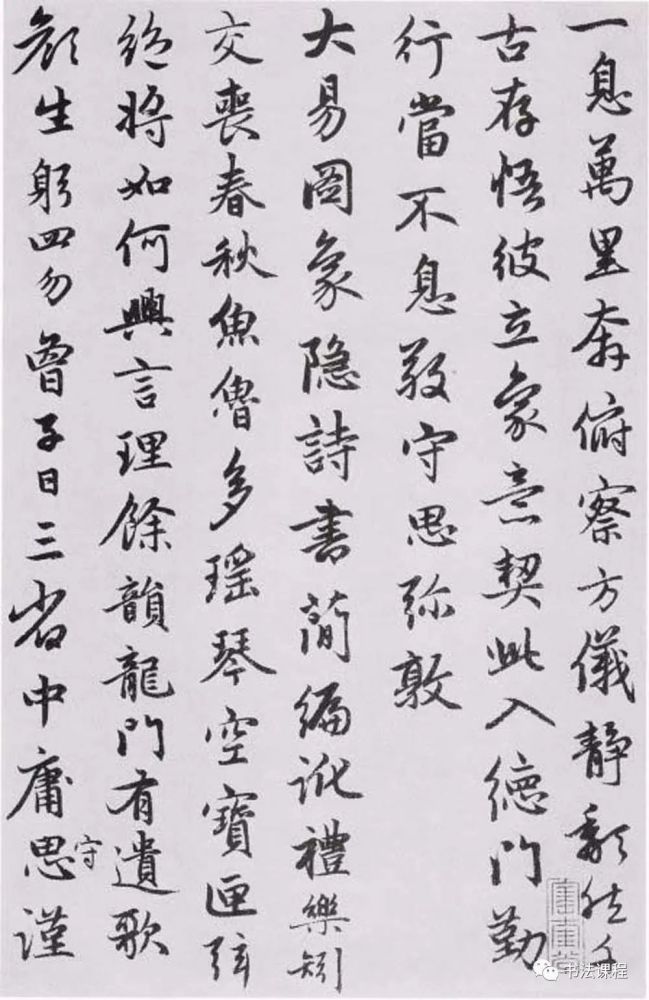 一息萬里奔俯察方儀靜頹然千
古存悟彼立象意契此入德門勤
行當不息敬守思弥敦
大易圖象隐詩書簡編訛禮樂矧
交喪春秋魚魯多瑶琴空寶匣弦
絶將如何興言理餘韻龍門有遺歌
顔生躬四勿曾子日三省中庸思謹
守
书法课程